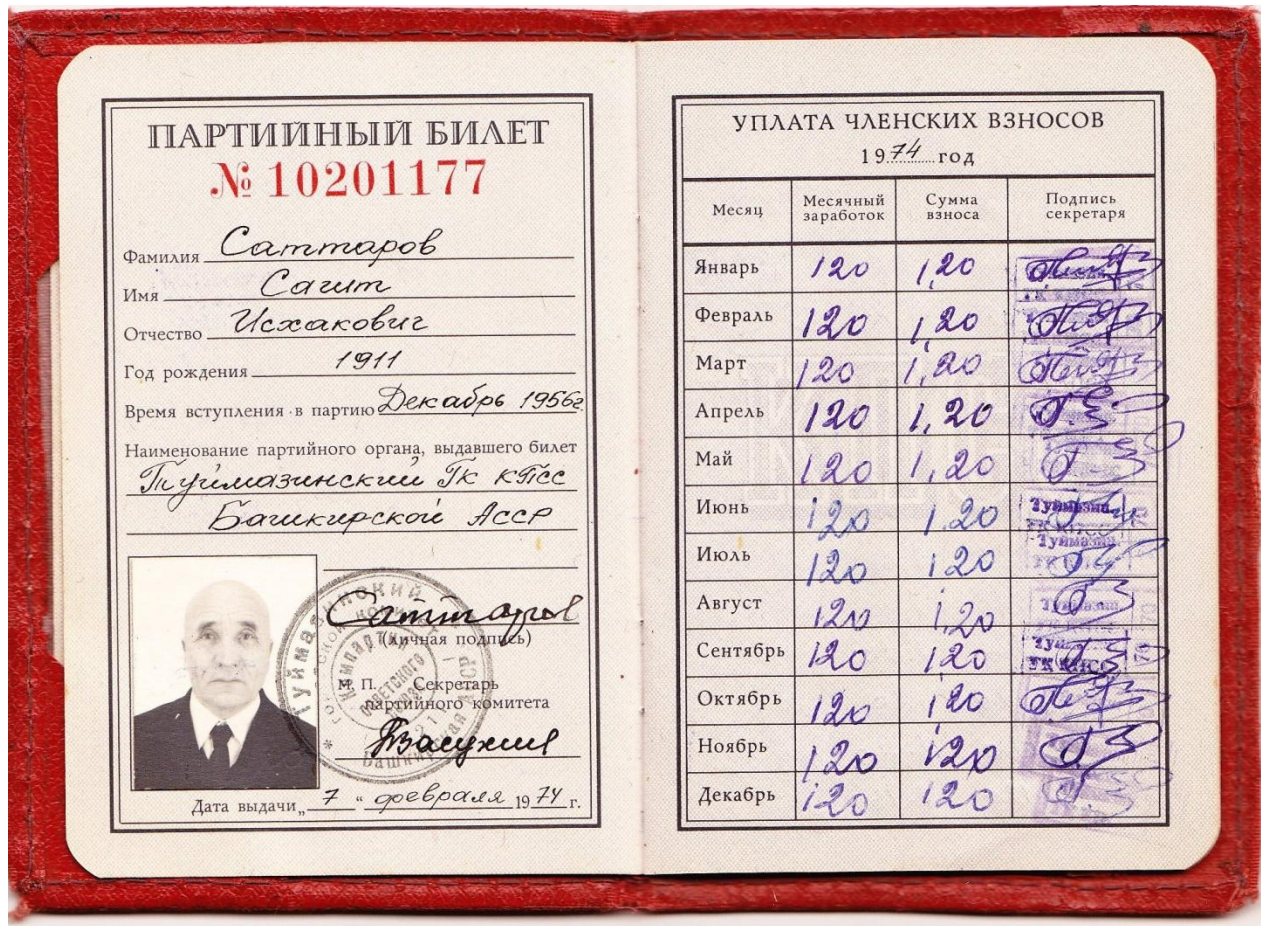 ПАРТИЙНЫЙ БИЛЕТ
№ 10201177
Фамилия Саттаров
Имя Сагит
Отчество Исхакович
Год рождения 1911
Время вступления в партию Декабрь 1956г.
Наименование партийного органа, выдавшего билет
Туймазинский ГК КПСС
Башкирской АССР
Саттаров
(личная подпись)
М. П. Секретарь
партийного комитета
Дата выдачи „7“ февраля 1974 г.
УПЛАТА ЧЛЕНСКИХ ВЗНОСОВ
1974 год
Месяц Месячный заработок Сумма взноса Подпись секретаря
Январь 120 1,20
Февраль 120 1,20
Март 120 1,20
Апрель 120 1,20
Май 120 1,20
Июнь 120 1.20
Июль 120 1.20
Август 120 1,20
Сентябрь 120 120
Октябрь 120 120
Ноябрь 120 120
Декабрь 120 120